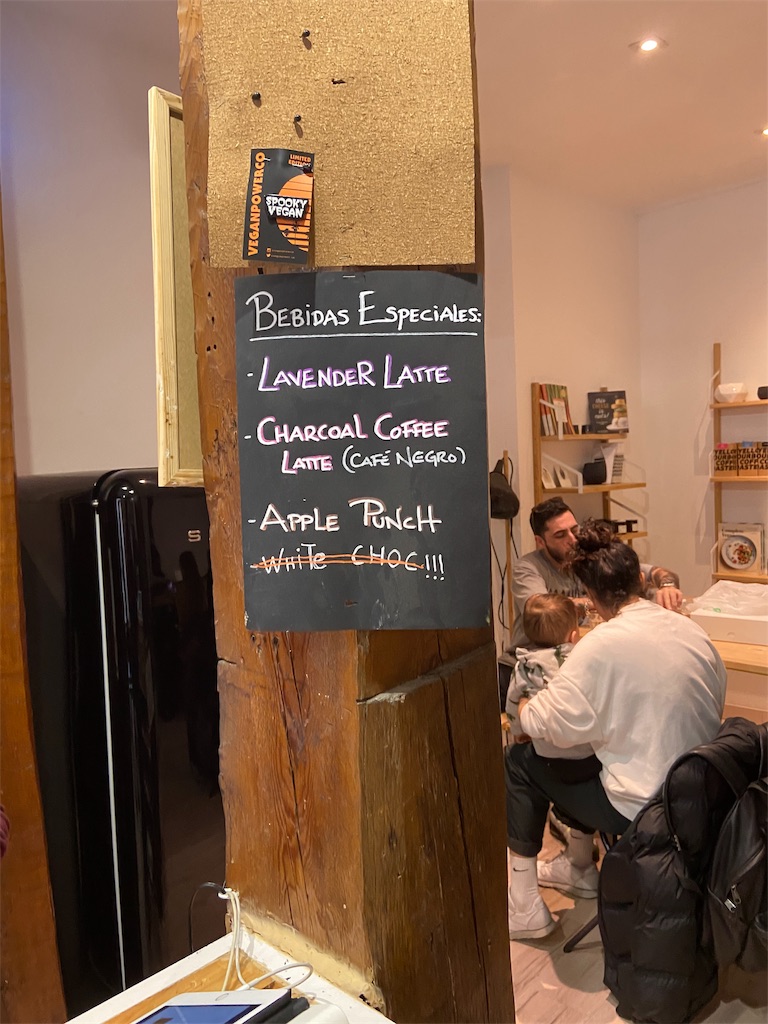 LIMITED
EDITION
VEGANPOWERCO
SPOOKY
VEGAN
BEBIDAS ESPECIALES:
- LAVENDER LATTE
- CHARCOAL COFFEE
LATTE (CAFÉ NEGRO)
- APPLE PUNCH
- WHITE CHOC!!!
S